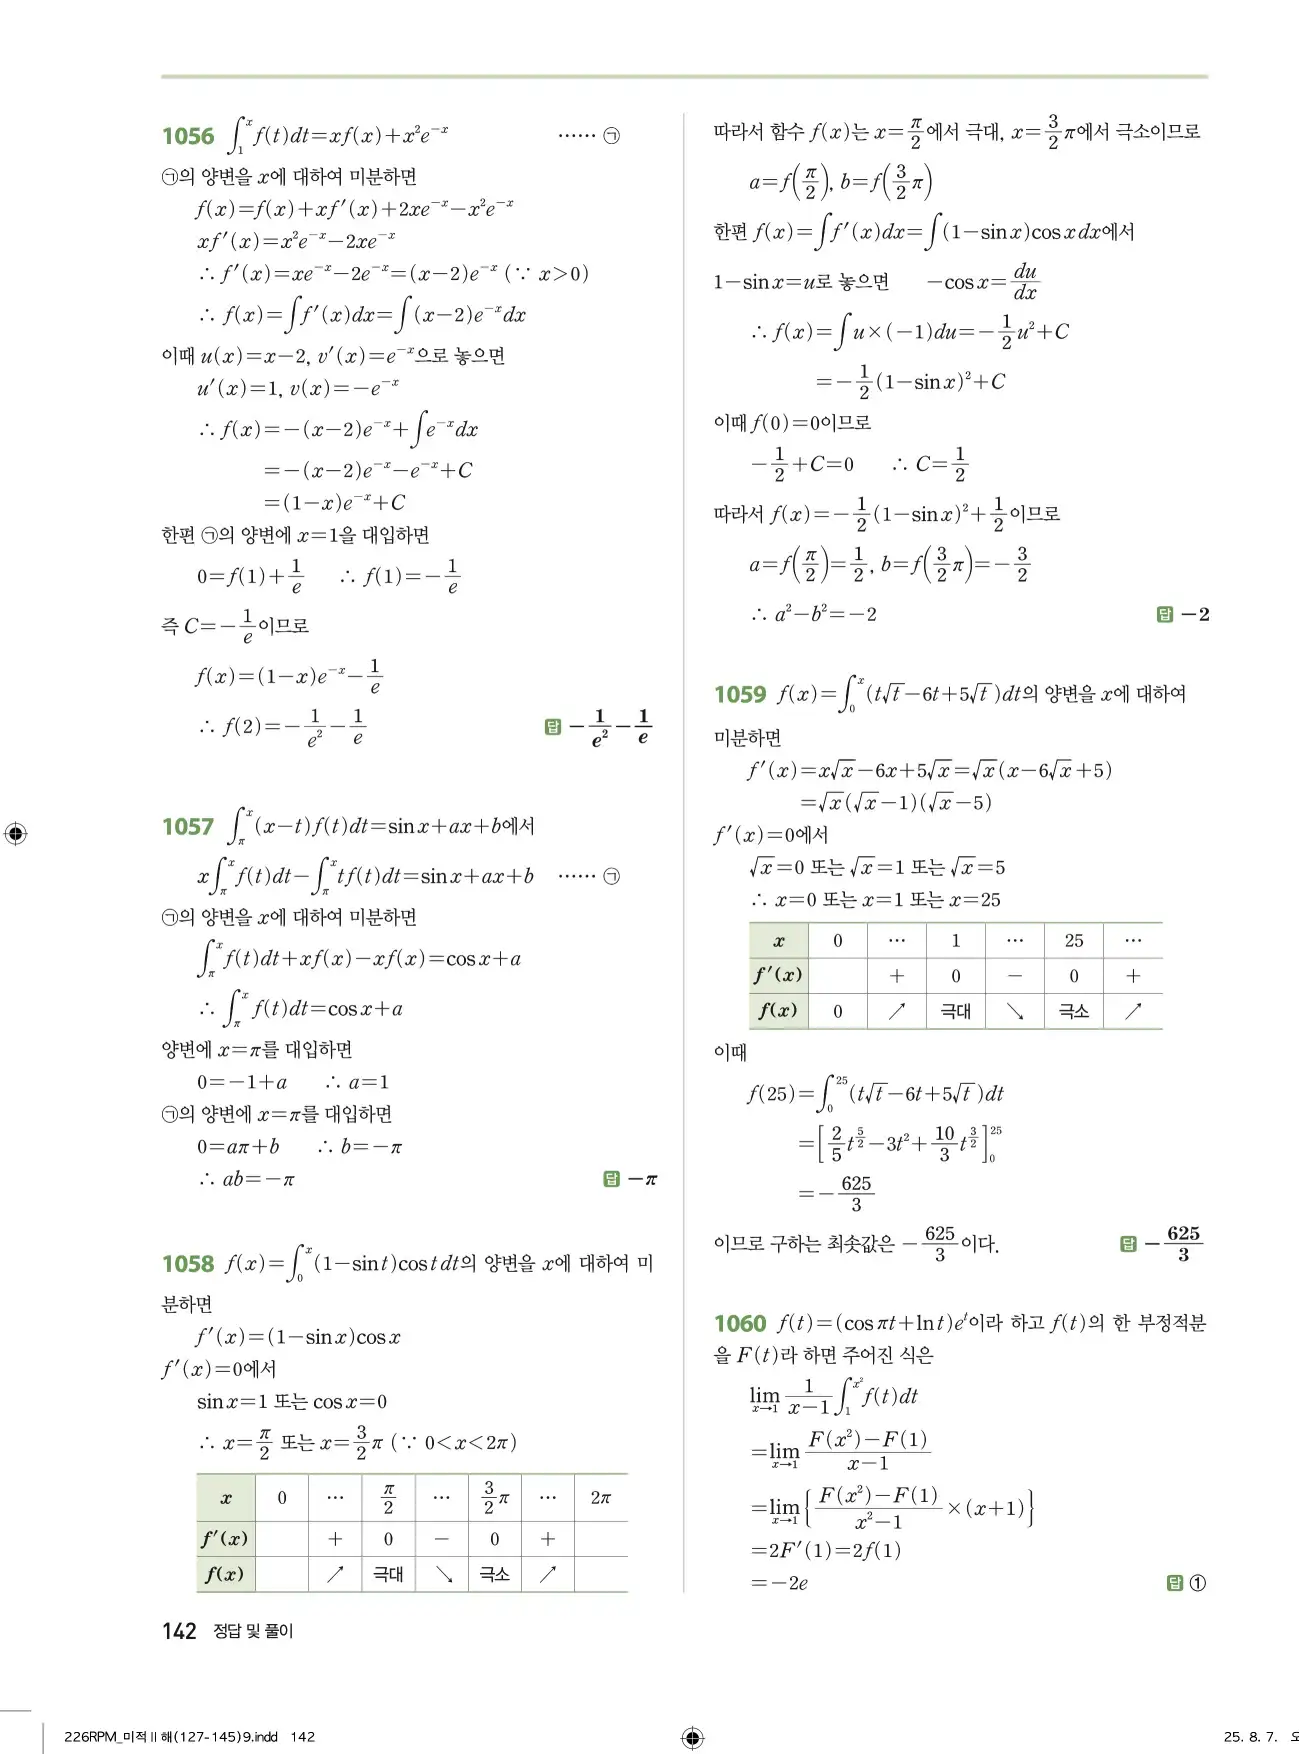 1056 ∫₁ˣ f(t)dt=xf(x)+x²e⁻ˣ …… ㉠
㉠의 양변을 x에 대하여 미분하면
f(x)=f(x)+xf′(x)+2xe⁻ˣ-x²e⁻ˣ
xf′(x)=x²e⁻ˣ-2xe⁻ˣ
∴ f′(x)=xe⁻ˣ-2e⁻ˣ=(x-2)e⁻ˣ (∵ x>0)
∴ f(x)=∫f′(x)dx=∫(x-2)e⁻ˣdx
이때 u(x)=x-2, v′(x)=e⁻ˣ으로 놓으면
u′(x)=1, v(x)=-e⁻ˣ
∴ f(x)=-(x-2)e⁻ˣ+∫e⁻ˣdx
=-(x-2)e⁻ˣ-e⁻ˣ+C
=(1-x)e⁻ˣ+C
한편 ㉠의 양변에 x=1을 대입하면
0=f(1)+1/e ∴ f(1)=-1/e
즉 C=-1/e이므로
f(x)=(1-x)e⁻ˣ-1/e
∴ f(2)=-1/e²-1/e 답 -1/e²-1/e
1057 ∫_π^x (x-t)f(t)dt=sin x+ax+b에서
x∫_π^x f(t)dt-∫_π^x tf(t)dt=sin x+ax+b …… ㉠
㉠의 양변을 x에 대하여 미분하면
∫_π^x f(t)dt+xf(x)-xf(x)=cos x+a
∴ ∫_π^x f(t)dt=cos x+a
양변에 x=π를 대입하면
0=-1+a ∴ a=1
㉠의 양변에 x=π를 대입하면
0=aπ+b ∴ b=-π
∴ ab=-π 답 -π
1058 f(x)=∫₀ˣ (1-sin t)cos t dt의 양변을 x에 대하여 미
분하면
f′(x)=(1-sin x)cos x
f′(x)=0에서
sin x=1 또는 cos x=0
∴ x=π/2 또는 x=3/2 π (∵ 0<x<2π)
x 0 … π/2 … 3/2 π … 2π
f′(x) + 0 - 0 +
f(x) ↗ 극대 ↘ 극소 ↗
따라서 함수 f(x)는 x=π/2에서 극대, x=3/2 π에서 극소이므로
a=f(π/2), b=f(3/2 π)
한편 f(x)=∫f′(x)dx=∫(1-sin x)cos x dx에서
1-sin x=u로 놓으면 -cos x=du/dx
∴ f(x)=∫u×(-1)du=-1/2 u²+C
=-1/2 (1-sin x)²+C
이때 f(0)=0이므로
-1/2+C=0 ∴ C=1/2
따라서 f(x)=-1/2 (1-sin x)²+1/2이므로
a=f(π/2)=1/2, b=f(3/2 π)=-3/2
∴ a²-b²=-2 답 -2
1059 f(x)=∫₀ˣ (t√t-6t+5√t)dt의 양변을 x에 대하여
미분하면
f′(x)=x√x-6x+5√x=√x(x-6√x+5)
=√x(√x-1)(√x-5)
f′(x)=0에서
√x=0 또는 √x=1 또는 √x=5
∴ x=0 또는 x=1 또는 x=25
x 0 … 1 … 25 …
f′(x) + 0 - 0 +
f(x) 0 ↗ 극대 ↘ 극소 ↗
이때
f(25)=∫₀²⁵ (t√t-6t+5√t)dt
=[2/5 t^(5/2)-3t²+10/3 t^(3/2)]₀²⁵
=-625/3
이므로 구하는 최솟값은 -625/3이다. 답 -625/3
1060 f(t)=(cos πt+ln t)eᵗ이라 하고 f(t)의 한 부정적분
을 F(t)라 하면 주어진 식은
lim_{x→1} 1/(x-1) ∫₁^{x²} f(t)dt
=lim_{x→1} (F(x²)-F(1))/(x-1)
=lim_{x→1} {(F(x²)-F(1))/(x²-1)×(x+1)}
=2F′(1)=2f(1)
=-2e 답 ①
142 정답 및 풀이
226RPM_미적Ⅱ해(127-145)9.indd 142
25. 8. 7.